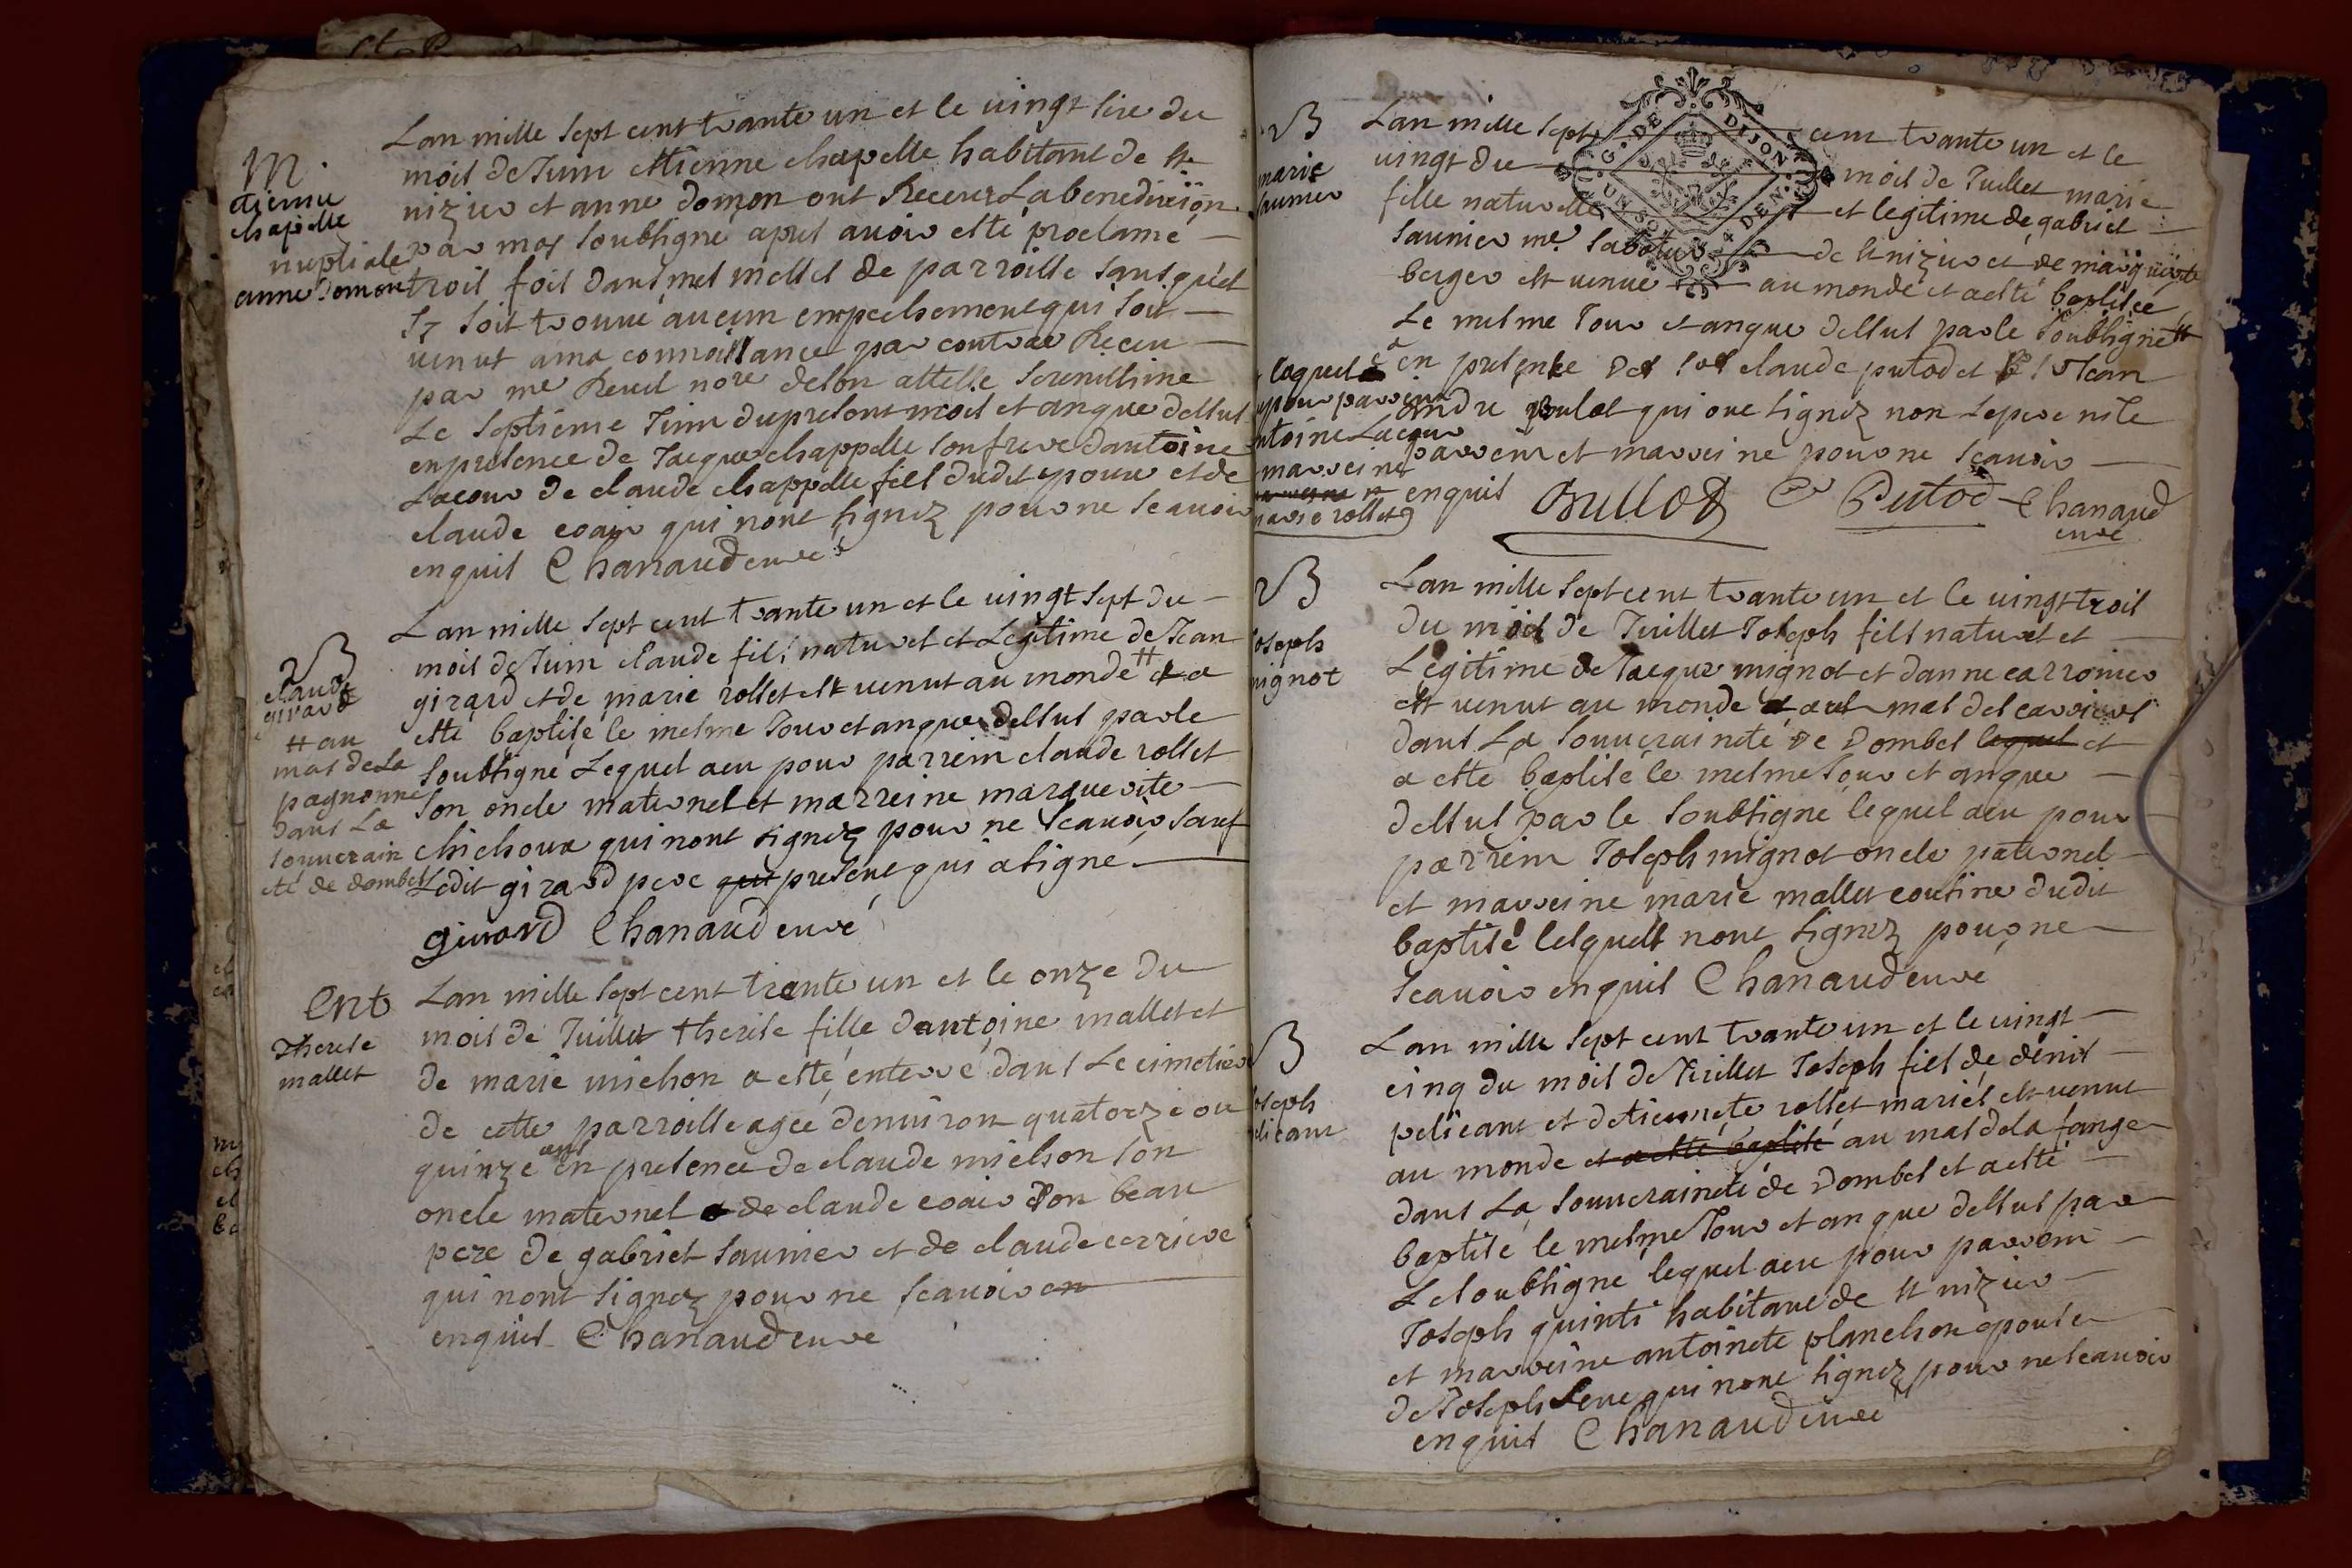 M.
etienne
chapelle
anne domon
Lan mille sept cent trante un et le uingt sixe du
mois de Juin etienne chapelle habitant de st
nizier et anne domon ont Receus La benediction
nuptiale par moy soubsigne apres auoir esté proclamé
trois fois dans mes messes de parroisse sans quel
sy soit trouué aucun empeschement qui soit
uenut a ma connoissance par contrae Receu
par me Reuel nore de son altesse serenissime
Le septième Juin du present mois et an que dessus
en presence de Jacque chappelle son frere dantoine
Lacour de claude chappelle fils dudit epoux et de
claude coair qui nont signez pour ne scauoir
enquis Chanaud curé
B
claude
girard
# au
mas de La
pagnonne
dans La
souuerain
eté de dombes
Lan mille sept cent trante un et le uingt sept du
mois de Juin claude fils naturel et Legitime de Jean
girard et de marie rollet est uenut au monde # et a
esté baptisé le mesme Jour et an que dessus par le
soubsigné Lequel a eu pour parrein claude rollet
son oncle maternel et marreine marguerite
chichoux qui nont signez pour ne scauoir sauf
Ledit girard pere qui present qui a signé
girard Chanaud curé
Ent
Therese
mallet
Lan mille sept cent trente un et le onze du
mois de Juillet therese fille dantoine mallet et
de marie michon a esté enterré dans Le cimetiere
de cette parroisse agée denuiron quatorze ou
quinze ans en presence de claude michon son
oncle maternel de claude coair son beau
pere de gabriel saunier et de claude carriere
qui nont signez pour ne scauoir en
enquis Chanaud curé
B
marie
saunier
Lan mille sept cent trante un et le
uingt du mois de Juillet marie
fille naturelle et legitime de gabriel
saunier me sabotier de st nizier et de marguerite
berger est uenue au monde et a esté baptisée
Le mesme Jour et an que dessus par le soubsigné #
laquelle en presence des srs claude putod et sr Jean
a eu pour parrein
andre gullot qui ont signez non le pere ni le
antoine Lacour
parrein et marreine pour ne scauoir
marreine
marie rollet
enquis
Gullot C Putod Chanaud
curé
G. DE DIJON
UN SOL 4 DEN.
B
Joseph
mignot
Lan mille sept cent trante un et le uingt trois
du mois de Juillet Joseph fils naturel et
Legitime de Jacque mignot et danne carronier
est uenut au monde au mas des carriers
dans La souueraineté de Dombes lequel et
a esté baptisé le mesme Jour et an que
dessus par le soubsigné lequel a eu pour
parrein Joseph mignot oncle paternel
et marreine marie mallet cousine dudit
baptisé lesquels nont signez pour ne
scauoir enquis Chanaud curé
B
Joseph
pelicant
Lan mille sept cent trante un et le uingt
cinq du mois de Juillet Joseph fils de dénis
pelicant et detiennete rollet mariés est uenut
au monde et a esté baptisé au mas de la fange
dans La souueraineté de Dombes et a esté
baptisé le mesme Jour et an que dessus par
Le soubsigné lequel a eu pour parrein
Joseph quinti habitant de st nizier
et marreine antoinete planchon epouse
de Joseph qui nont signez pour ne scauoir
enquis Chanaud curé